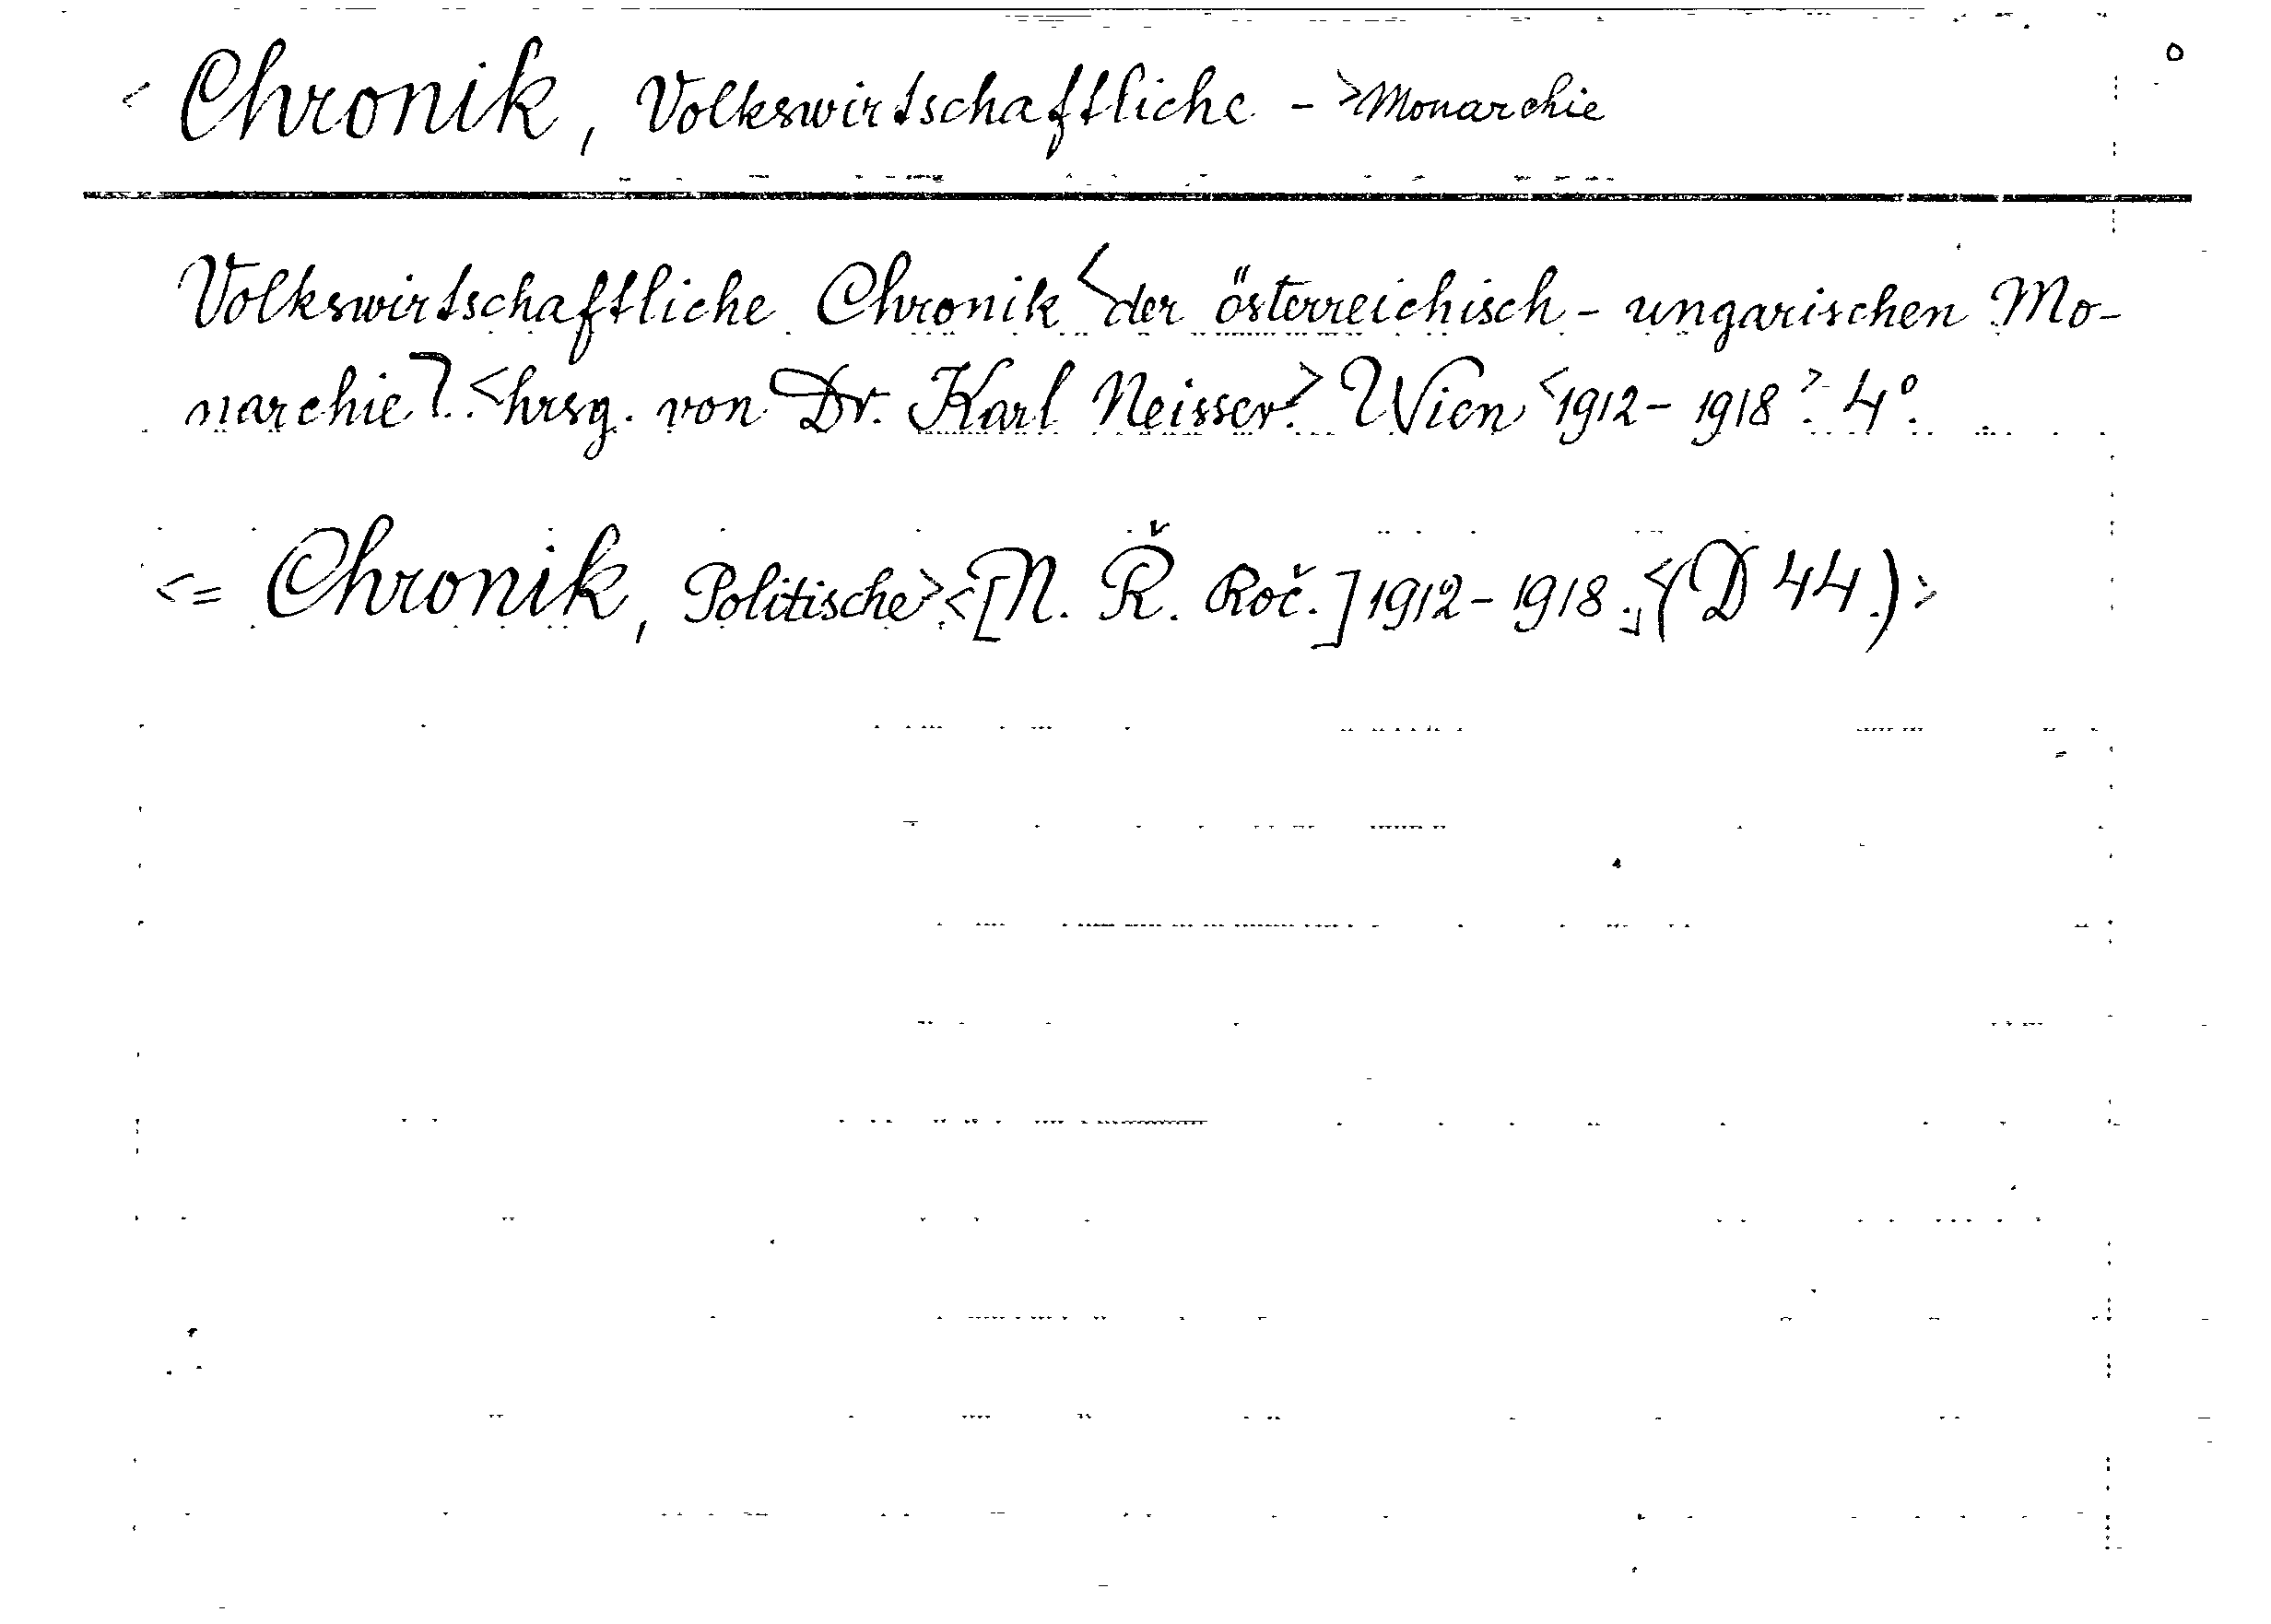 < Chronik, Volkswirtschaftliche - > Monarchie
Volkswirtschaftliche Chronik < der österreichisch - ungarischen Mo-
narchie >. < hrsg. von Dr. Karl Neisser. > Wien < 1912 - 1918 >. 4°.
< = Chronik, Politische > < [N. Ř. Roč.] 1912 - 1918., < (D 44.) >